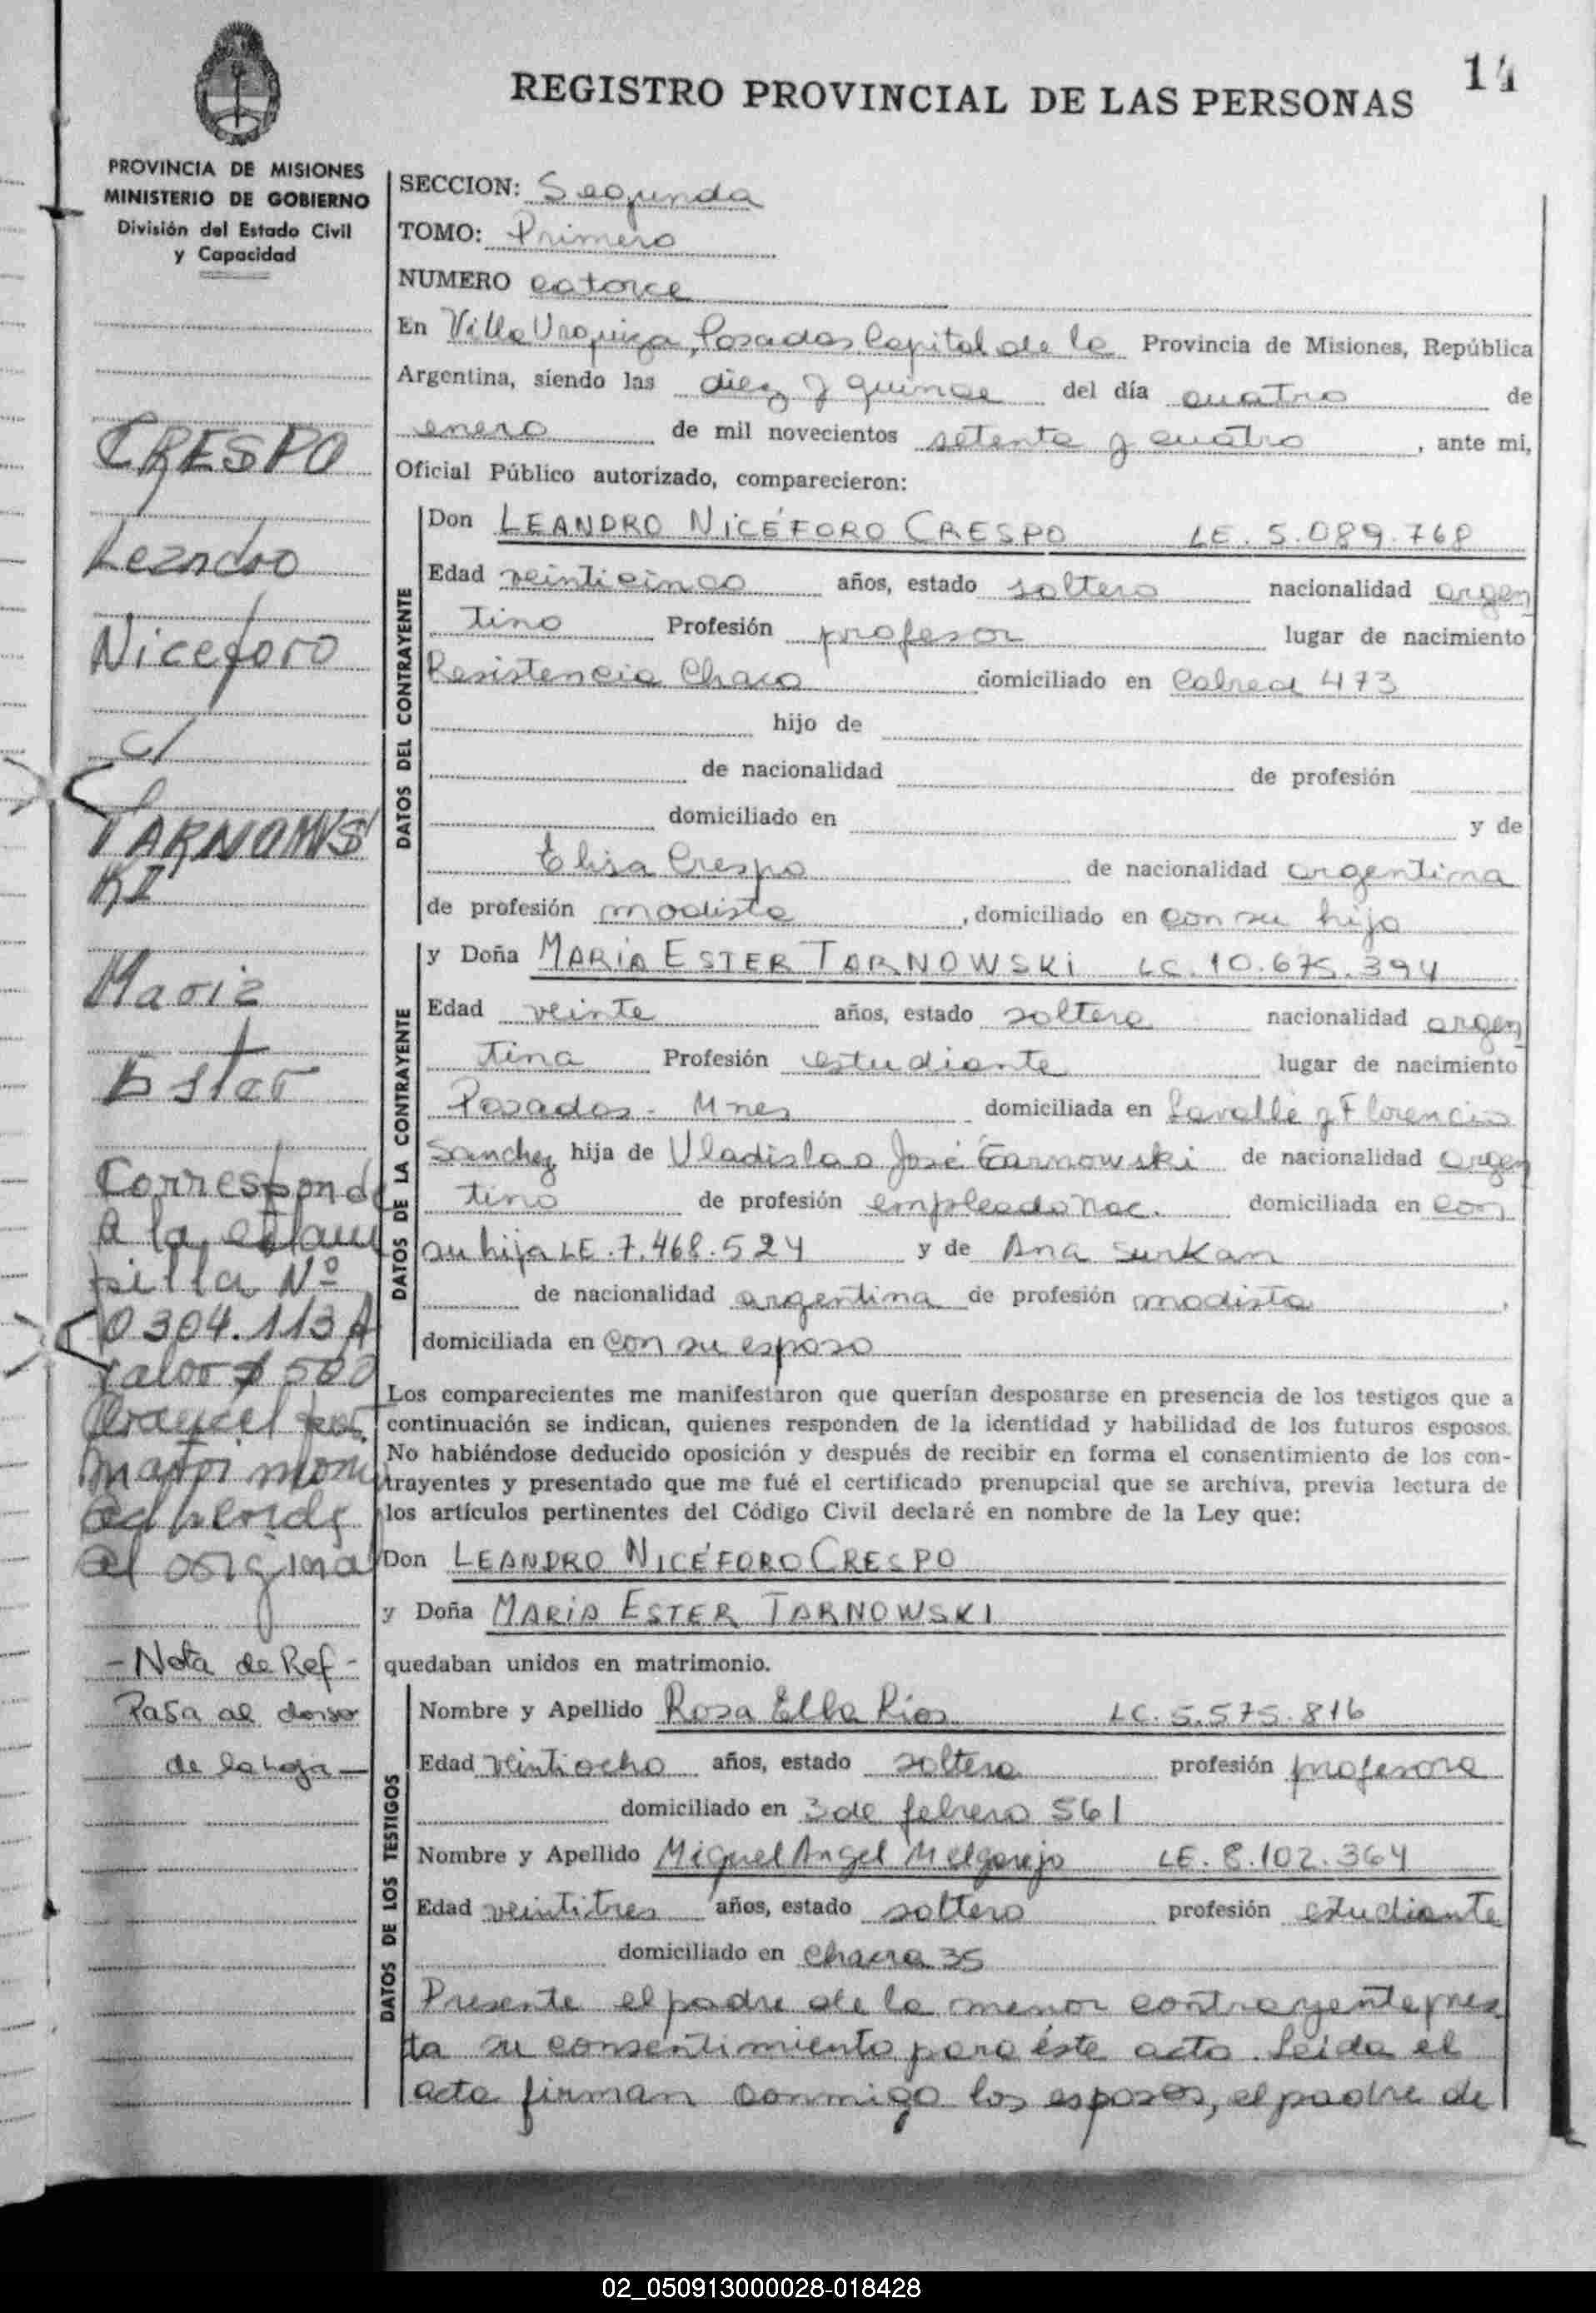 14
REGISTRO PROVINCIAL DE LAS PERSONAS
PROVINCIA DE MISIONES
MINISTERIO DE GOBIERNO
División del Estado Civil
y Capacidad
CRESPO
Leandro
Niceforo
c/
TARNOWS
KI
Maria
Ester
Corresponde
a la estam
pilla Nº
0304.113 A
valor $ 500
Arancel por
matrimoni
adherida
al original
- Nota de Ref -
Pasa al dorso
de la hoja -
SECCION: Segunda
TOMO: Primero
NUMERO catorce
En Villa Urquiza, Posadas Capital de la Provincia de Misiones, República
Argentina, siendo las diez y quince del día cuatro de
enero de mil novecientos setenta y cuatro, ante mi,
Oficial Público autorizado, comparecieron:
DATOS DEL CONTRAYENTE
Don LEANDRO NICÉFORO CRESPO LE. 5.089.768
Edad veinticinco años, estado soltero nacionalidad argen
tino Profesión profesor lugar de nacimiento
Resistencia Chaco domiciliado en Cabred 473
hijo de
de nacionalidad de profesión
domiciliado en y de
Elisa Crespo de nacionalidad argentina
de profesión modista, domiciliado en con su hijo
DATOS DE LA CONTRAYENTE
y Doña MARIA ESTER TARNOWSKI LC. 10.675.394
Edad veinte años, estado soltera nacionalidad argen
tina Profesión estudiante lugar de nacimiento
Posadas - Mnes domiciliada en Lavalle y Florencio
Sanchez hija de Vladislao José Tarnowski de nacionalidad argen
tino de profesión empleado nac. domiciliada en con
su hija LE. 7.468.524 y de Ana Surkan
de nacionalidad argentina de profesión modista,
domiciliada en con su esposo
Los comparecientes me manifestaron que querían desposarse en presencia de los testigos que a
continuación se indican, quienes responden de la identidad y habilidad de los futuros esposos.
No habiéndose deducido oposición y después de recibir en forma el consentimiento de los con-
trayentes y presentado que me fué el certificado prenupcial que se archiva, previa lectura de
los artículos pertinentes del Código Civil declaré en nombre de la Ley que:
Don LEANDRO NICÉFORO CRESPO
y Doña MARIA ESTER TARNOWSKI
quedaban unidos en matrimonio.
DATOS DE LOS TESTIGOS
Nombre y Apellido Rosa Elba Rios LC. 5.575.816
Edad veintiocho años, estado soltera profesión profesora
domiciliado en 3 de febrero 561
Nombre y Apellido Miguel Angel Melgarejo LE. 8.102.364
Edad veintitres años, estado soltero profesión estudiante
domiciliado en chacra 35
Presente el padre de la menor contrayente pres
ta su consentimiento para éste acto. Leida el
acta firman conmigo los esposos, el padre de
02_050913000028-018428